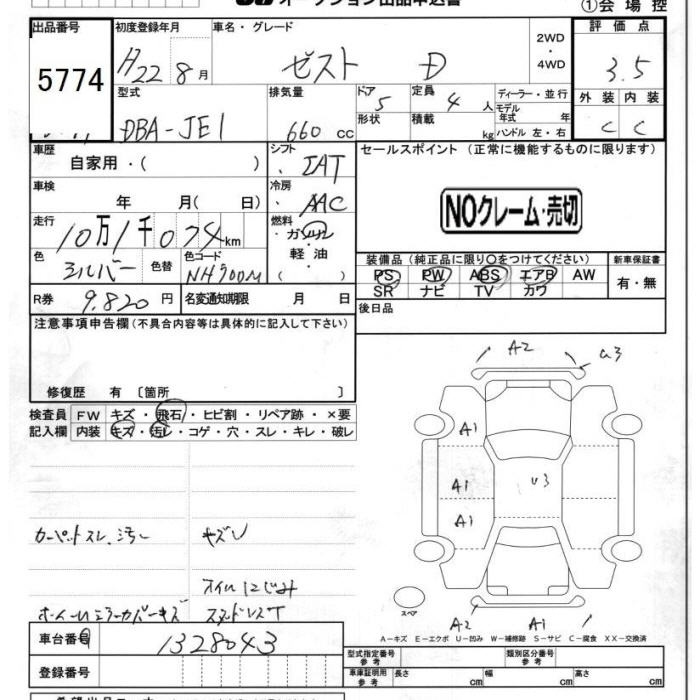 オークション出品申込書
①会場控
出品番号
5774
初度登録年月
H22 8月
車名・グレード
ゼスト D
2WD・4WD
評価点
3.5
型式
DBA-JE1
排気量
660 cc
ドア
5
形状
定員
4人
積載
kg
ディーラー・並行
モデル年式 年
ハンドル 左・右
外装 内装
C C
車歴
自家用・( )
シフト
IAT
セールスポイント (正常に機能するものに限ります)
NOクレーム・売切
車検
年 月( 日)
冷房
AAC
走行
10万1千074km
燃料
・ガソリン
軽油
・( )
色
シルバー
色替
色コード
NH700M
装備品 (純正品に限り○をつけてください)
PS PW ABS エアB AW
SR ナビ TV カワ
新車保証書
有・無
R券 9.820円
名変通知期限 月 日
後日品
注意事項申告欄(不具合内容等は具体的に記入して下さい)
修復歴 有 〔箇所 〕
検査員記入欄
FW キズ・飛石・ヒビ割・リペア跡・×要
内装 キズ・汚レ・コゲ・穴・スレ・キレ・破レ
カーペットスレ、汚レ
キズU
スイルにじみ
ホイールミラーカバーキズ
A2
U3
A1
A1
U3
A1
A2
A1
スペア
A-キズ E-エクボ U-凹み W-補修跡 S-サビ C-腐食 XX-交換済
車台番号
1328043
登録番号
型式指定番号 参考
類別区分番号 参考
車庫証明用 参考
長さ cm
幅 cm
高さ cm